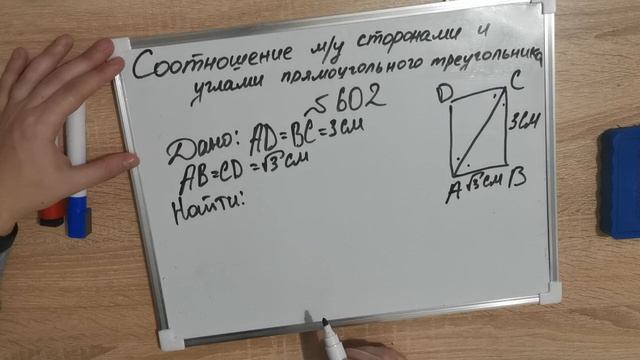 Соотношение м/у сторонами и
углами прямоугольного треугольника
602
Дано: AD=BC=3см
AB=CD=√3см
Найти:
D C
3см
A √3см B